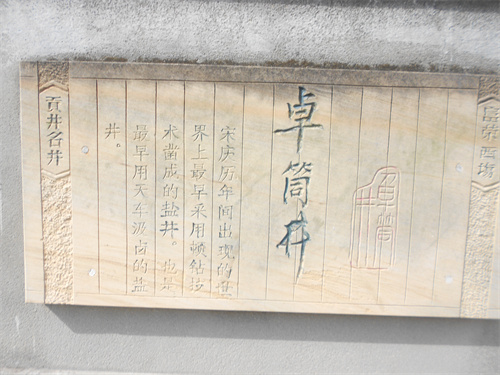 卓筒井
宋庆历年间出现的世
界上最早采用顿钻技
术凿成的盐井。也是
最早用天车汲卤的盐
井。
贡井名井